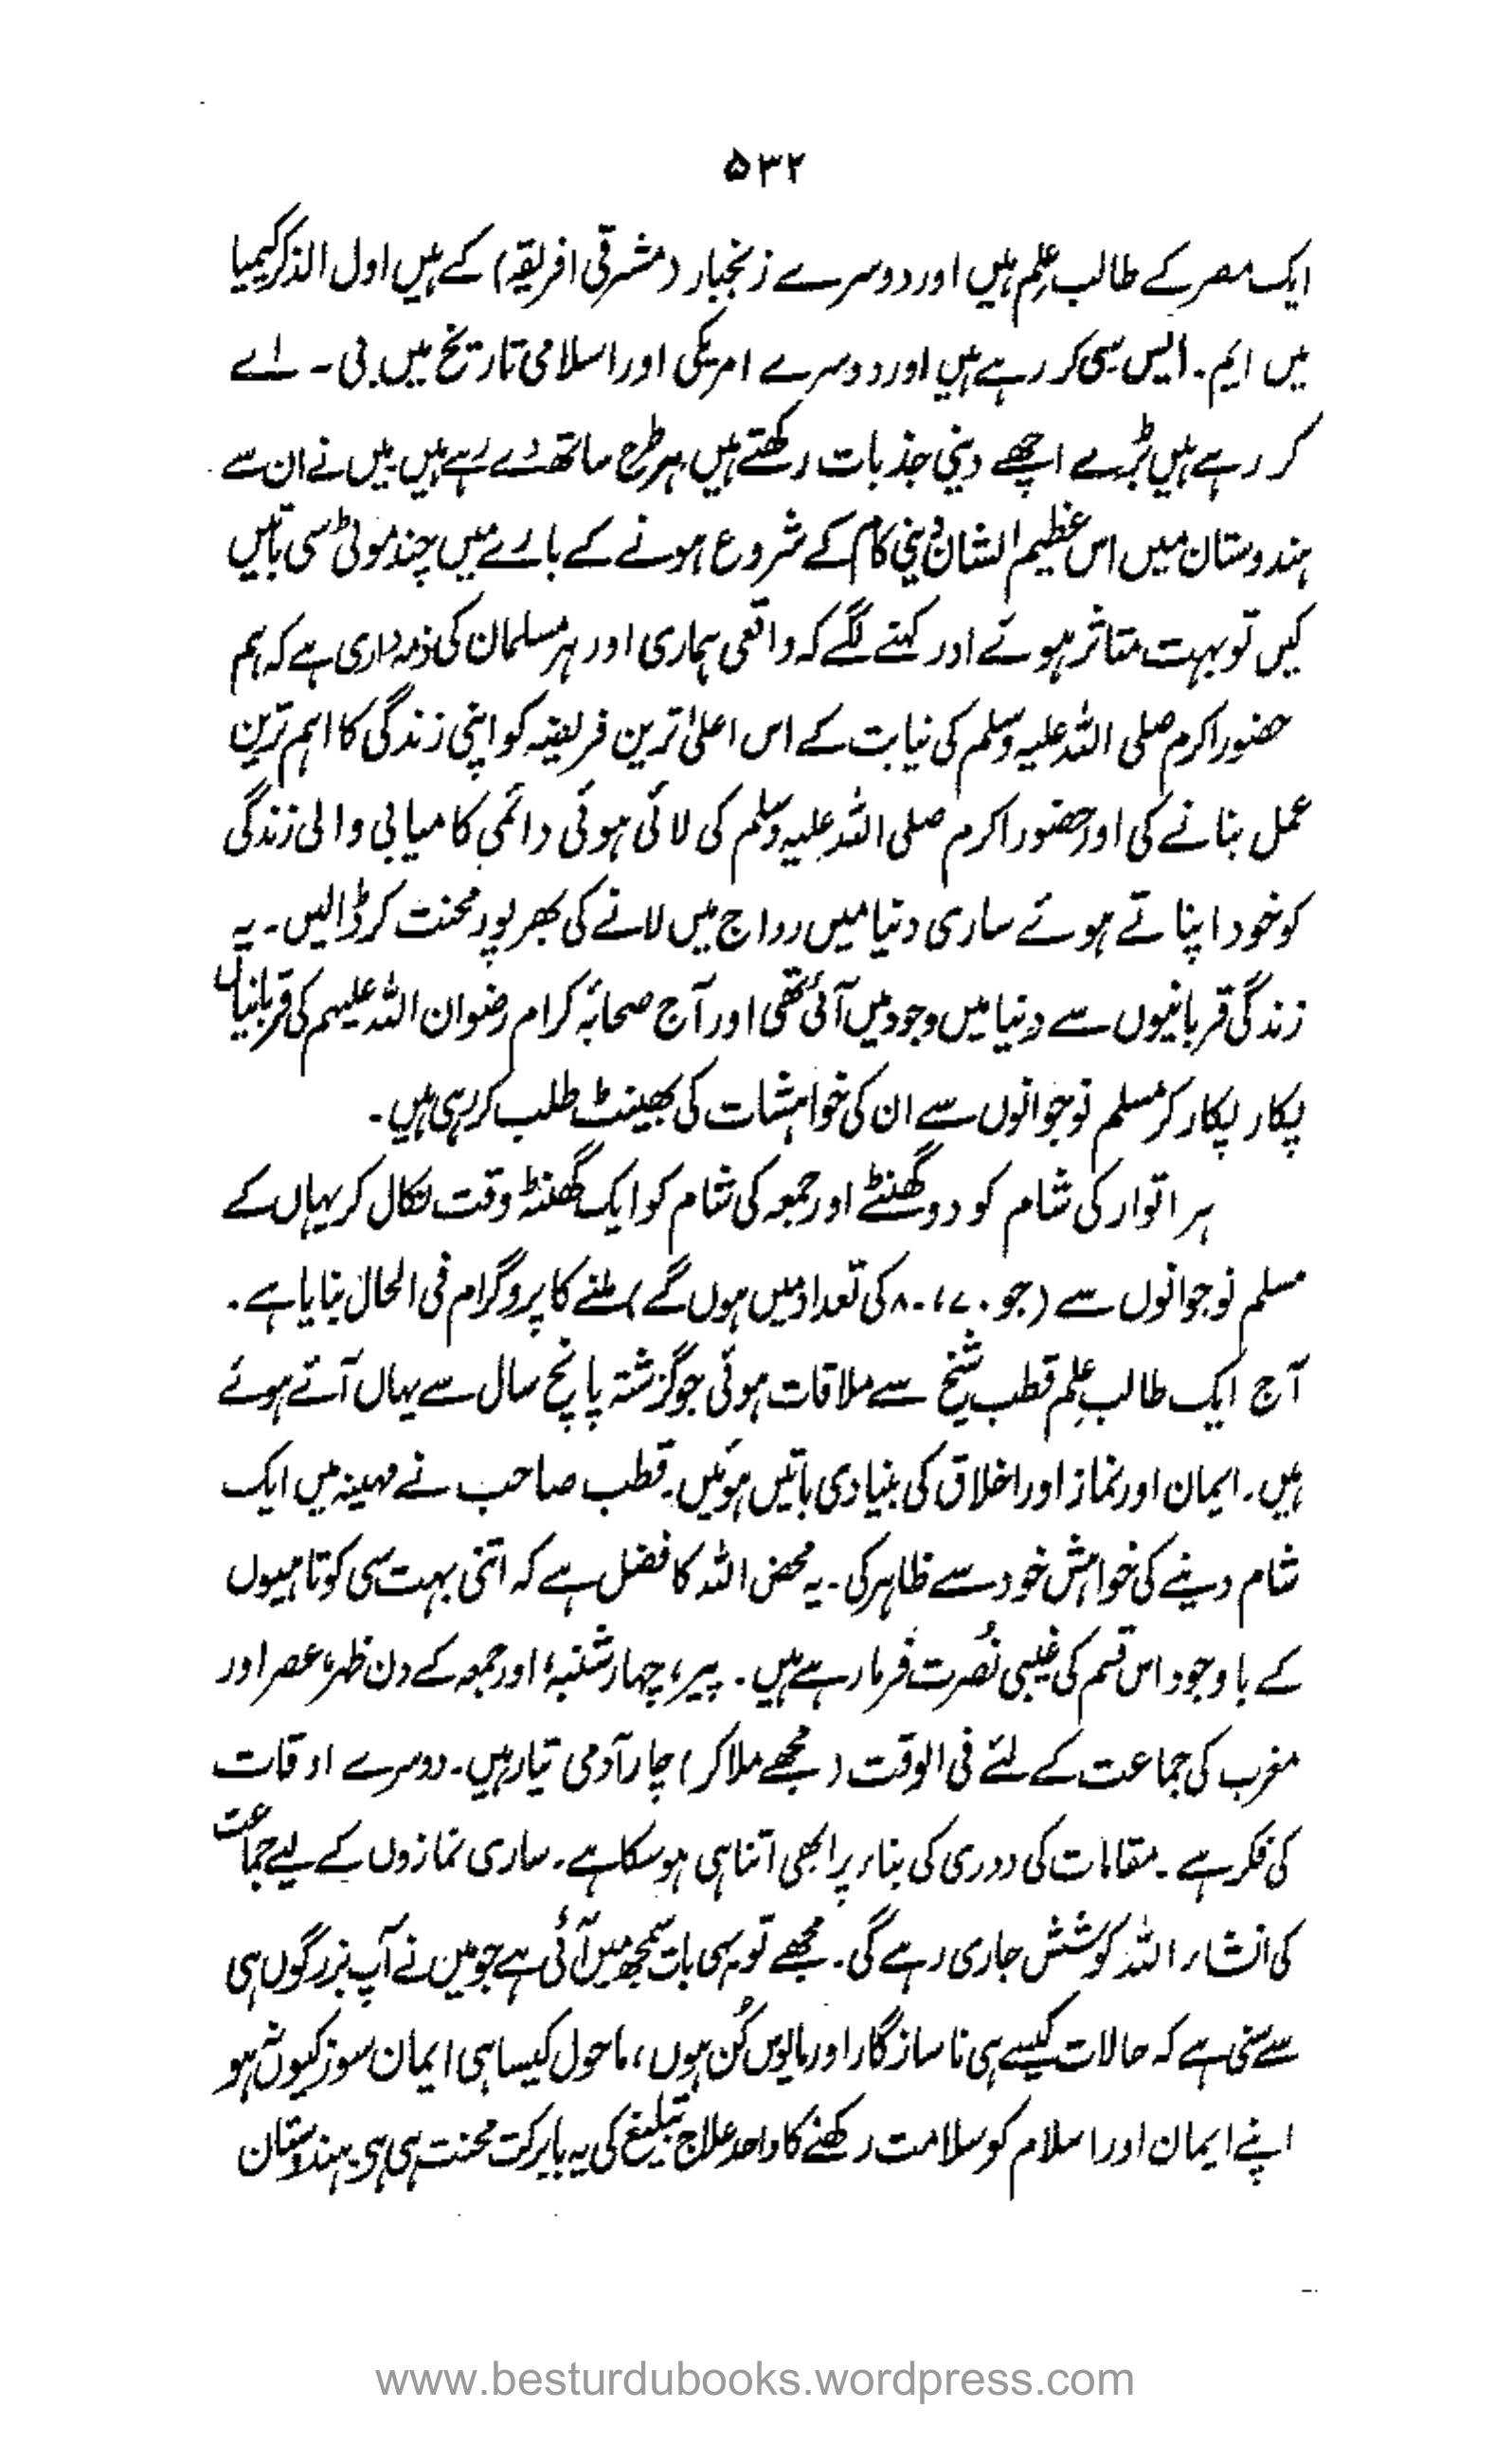 ۵۳۲
ایک مصر کے طالب علم ہیں اور دوسرے زنجبار (مشرقی افریقہ) کے ہیں اول الذکر کیمیا
میں ایم۔ ایس سی کر رہے ہیں اور دوسرے امریکی اور اسلامی تاریخ میں بی۔ اے
کر رہے ہیں بڑے اچھے دینی جذبات رکھتے ہیں ہر طرح ساتھ دے رہے ہیں۔ میں نے ان سے
ہندوستان میں اس عظیم الشان دینی کام کے شروع ہونے کے بارے میں چند موٹی سی باتیں
کیں تو بہت متاثر ہوئے اور کہنے لگے کہ واقعی ہماری اور ہر مسلمان کی ذمہ داری ہے کہ ہم
حضور اکرم صلی اللہ علیہ وسلم کی نیابت کے اس اعلیٰ ترین فریضہ کو اپنی زندگی کا اہم ترین
عمل بنانے کی اور حضور اکرم صلی اللہ علیہ وسلم کی لائی ہوئی دائمی کامیابی والی زندگی
کو خود اپناتے ہوئے ساری دنیا میں رواج میں لانے کی بھرپور محنت کر ڈالیں۔ یہ
زندگی قربانیوں سے دنیا میں وجود میں آئی تھی اور آج صحابۂ کرام رضوان اللہ علیہم کی قربانیاں
پکار پکار کر مسلم نوجوانوں سے ان کی خواہشات کی بھینٹ طلب کر رہی ہیں۔
ہر اتوار کی شام کو دو گھنٹے اور جمعہ کی شام کو ایک گھنٹہ وقت نکال کر یہاں کے
مسلم نوجوانوں سے (جو ۷۰، ۸۰ کی تعداد میں ہوں گے) ملنے کا پروگرام فی الحال بنایا ہے۔
آج ایک طالب علم قطب شیخ سے ملاقات ہوئی جو گزشتہ پانچ سال سے یہاں آئے ہوئے
ہیں۔ ایمان اور نماز اور اخلاق کی بنیادی باتیں ہوئیں۔ قطب صاحب نے مہینہ میں ایک
شام دینے کی خواہش خود سے ظاہر کی۔ یہ محض اللہ کا فضل ہے کہ اتنی بہت سی کوتاہیوں
کے باوجود اس قسم کی غیبی نصرت فرما رہے ہیں۔ پیر، چہار شنبہ، اور جمعہ کے دن ظہر، عصر اور
مغرب کی جماعت کے لئے فی الوقت (مجھے ملا کر) چار آدمی تیار ہیں۔ دوسرے اوقات
کی فکر ہے۔ مقامات کی دوری کی بناء پر ابھی اتنا ہی ہو سکا ہے۔ ساری نمازوں کے لیے جماعت
کی انشاء اللہ کوشش جاری رہے گی۔ مجھے تو یہی بات سمجھ میں آئی ہے جو میں نے آپ بزرگوں ہی
سے سنی ہے کہ حالات کیسے ہی ناسازگار اور مایوس کُن ہوں، ماحول کیسا ہی ایمان سوز کیوں نہ ہو
اپنے ایمان اور اسلام کو سلامت رکھنے کا واحد علاج تبلیغ کی یہ بابرکت محنت ہی ہی۔ ہندوستان
www.besturdubooks.wordpress.com